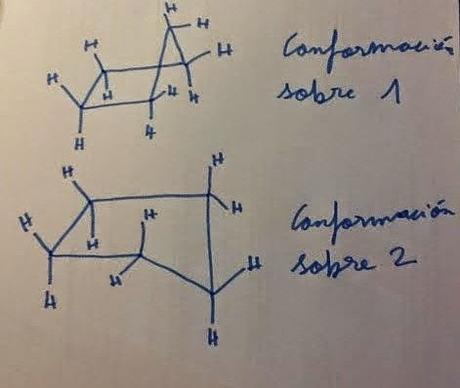 H
H
H
H
Conformación
sobre 1
H
H
H
H
H
H
H
H
H
H
Conformación
sobre 2
H
H
H
H
H
H